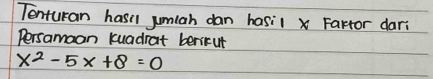 Tentukan hasil jumlah dan hasil x Faktor dari
Persamaan kuadrat berikut
x² - 5x + 8 = 0